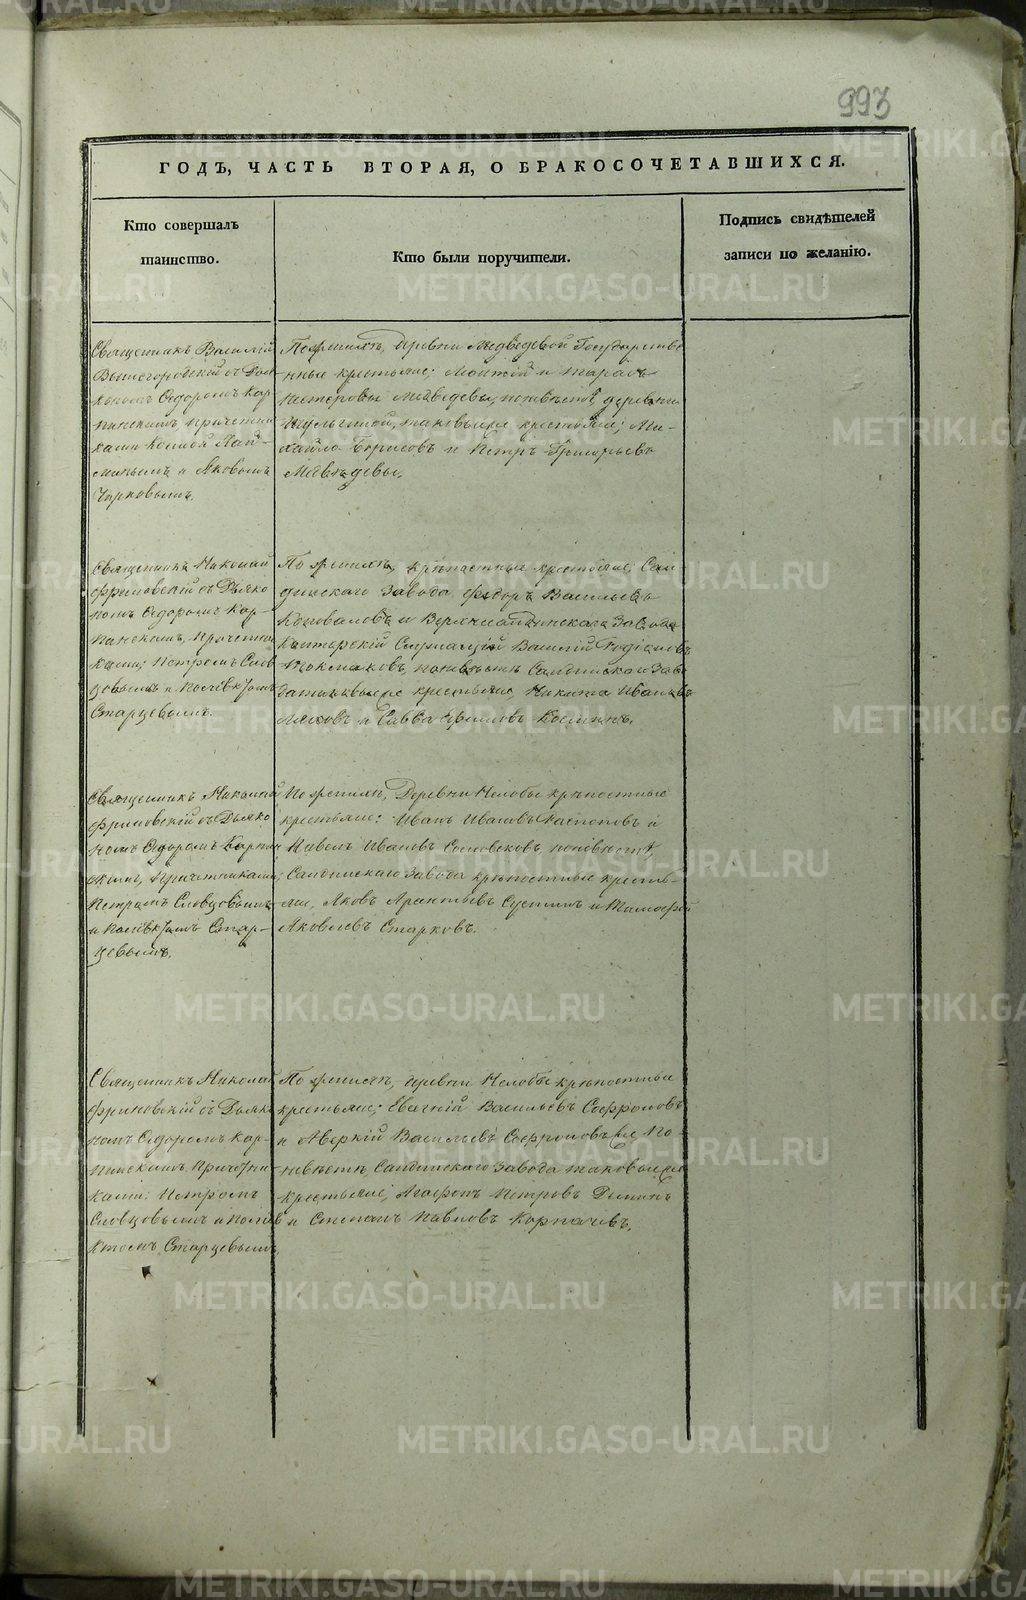 993
ГОДЪ, ЧАСТЬ ВТОРАЯ, О БРАКОСОЧЕТАВШИХСЯ.
Кто совершалъ
таинство.
Кто были поручители.
Подпись свидѣтелей
записи по желанію.
Священникъ Василій
Вышегородскій съ Дья
кономъ Ѳедоромъ Кар
пинскимъ, причетни
ками
и Яковымъ
По женихѣ, деревни Медвѣдевой Государстве
нные крестьяне; и Тарасъ
Нестеровы Медвѣдевы, по невѣстѣ, деревни
таковыеже крестьяне; Ми-
хайло Борисовъ и Петръ Григорьевъ
Медвѣдевы.
Священникъ Николай
съ Дьяко
номъ Ѳедоромъ Кар-
пинскимъ, Причетни
ками; Петромъ Слов
цовымъ и
Старцевымъ.
По женихѣ, крѣпостные крестьяне; Сал
динскаго Завода Ѳедоръ Васильевъ
Коноваловъ и Верхнесалдинскаго Завода
Конторскій Служащій Василій Родіоновъ
Токмаковъ, по невѣстѣ Салдинскаго Заво
да таковыеже крестьяне, Никита Ивановъ
и Савва
Священникъ Николай
съ Дьяко
номъ Ѳедоромъ Карпин
скимъ, Причетниками;
Петромъ Словцовымъ
и Стар-
цевымъ.
По женихѣ, Деревни Нелобы крѣпостные
крестьяне: Иванъ Ивановъ Распоповъ и
Павелъ Ивановъ по невѣстѣ,
Салдинскаго Завода крѣпостные кресть-
яне, Яковъ и Тимофей
Яковлевъ Старковъ.
Священникъ Николай
съ Дьяко
номъ Ѳедоромъ Кар-
пинскимъ, Причетни
ками: Петромъ
Словцовымъ и
Старцевымъ,
По женихѣ, деревни Нелобы крѣпостные
крестьяне; Евгений Васильевъ Софроновъ
и Аверкій Васильевъ Софроновъ же По
невѣстѣ Салдинскаго Завода таковыеже
крестьяне, Агафонъ Петровъ
и Степанъ Павловъ Корпачевъ,
METRIKI.GASO-URAL.RU